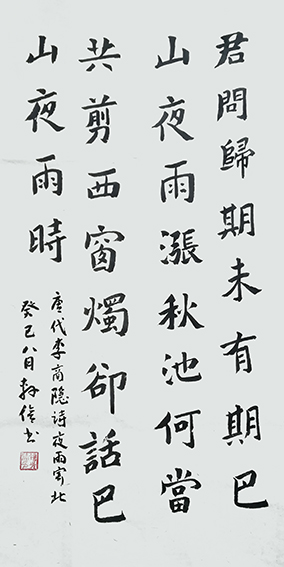 君問歸期未有期巴
山夜雨漲秋池何當
共剪西窗燭卻話巴
山夜雨時
唐代李商隐诗夜雨寄北
癸巳八月